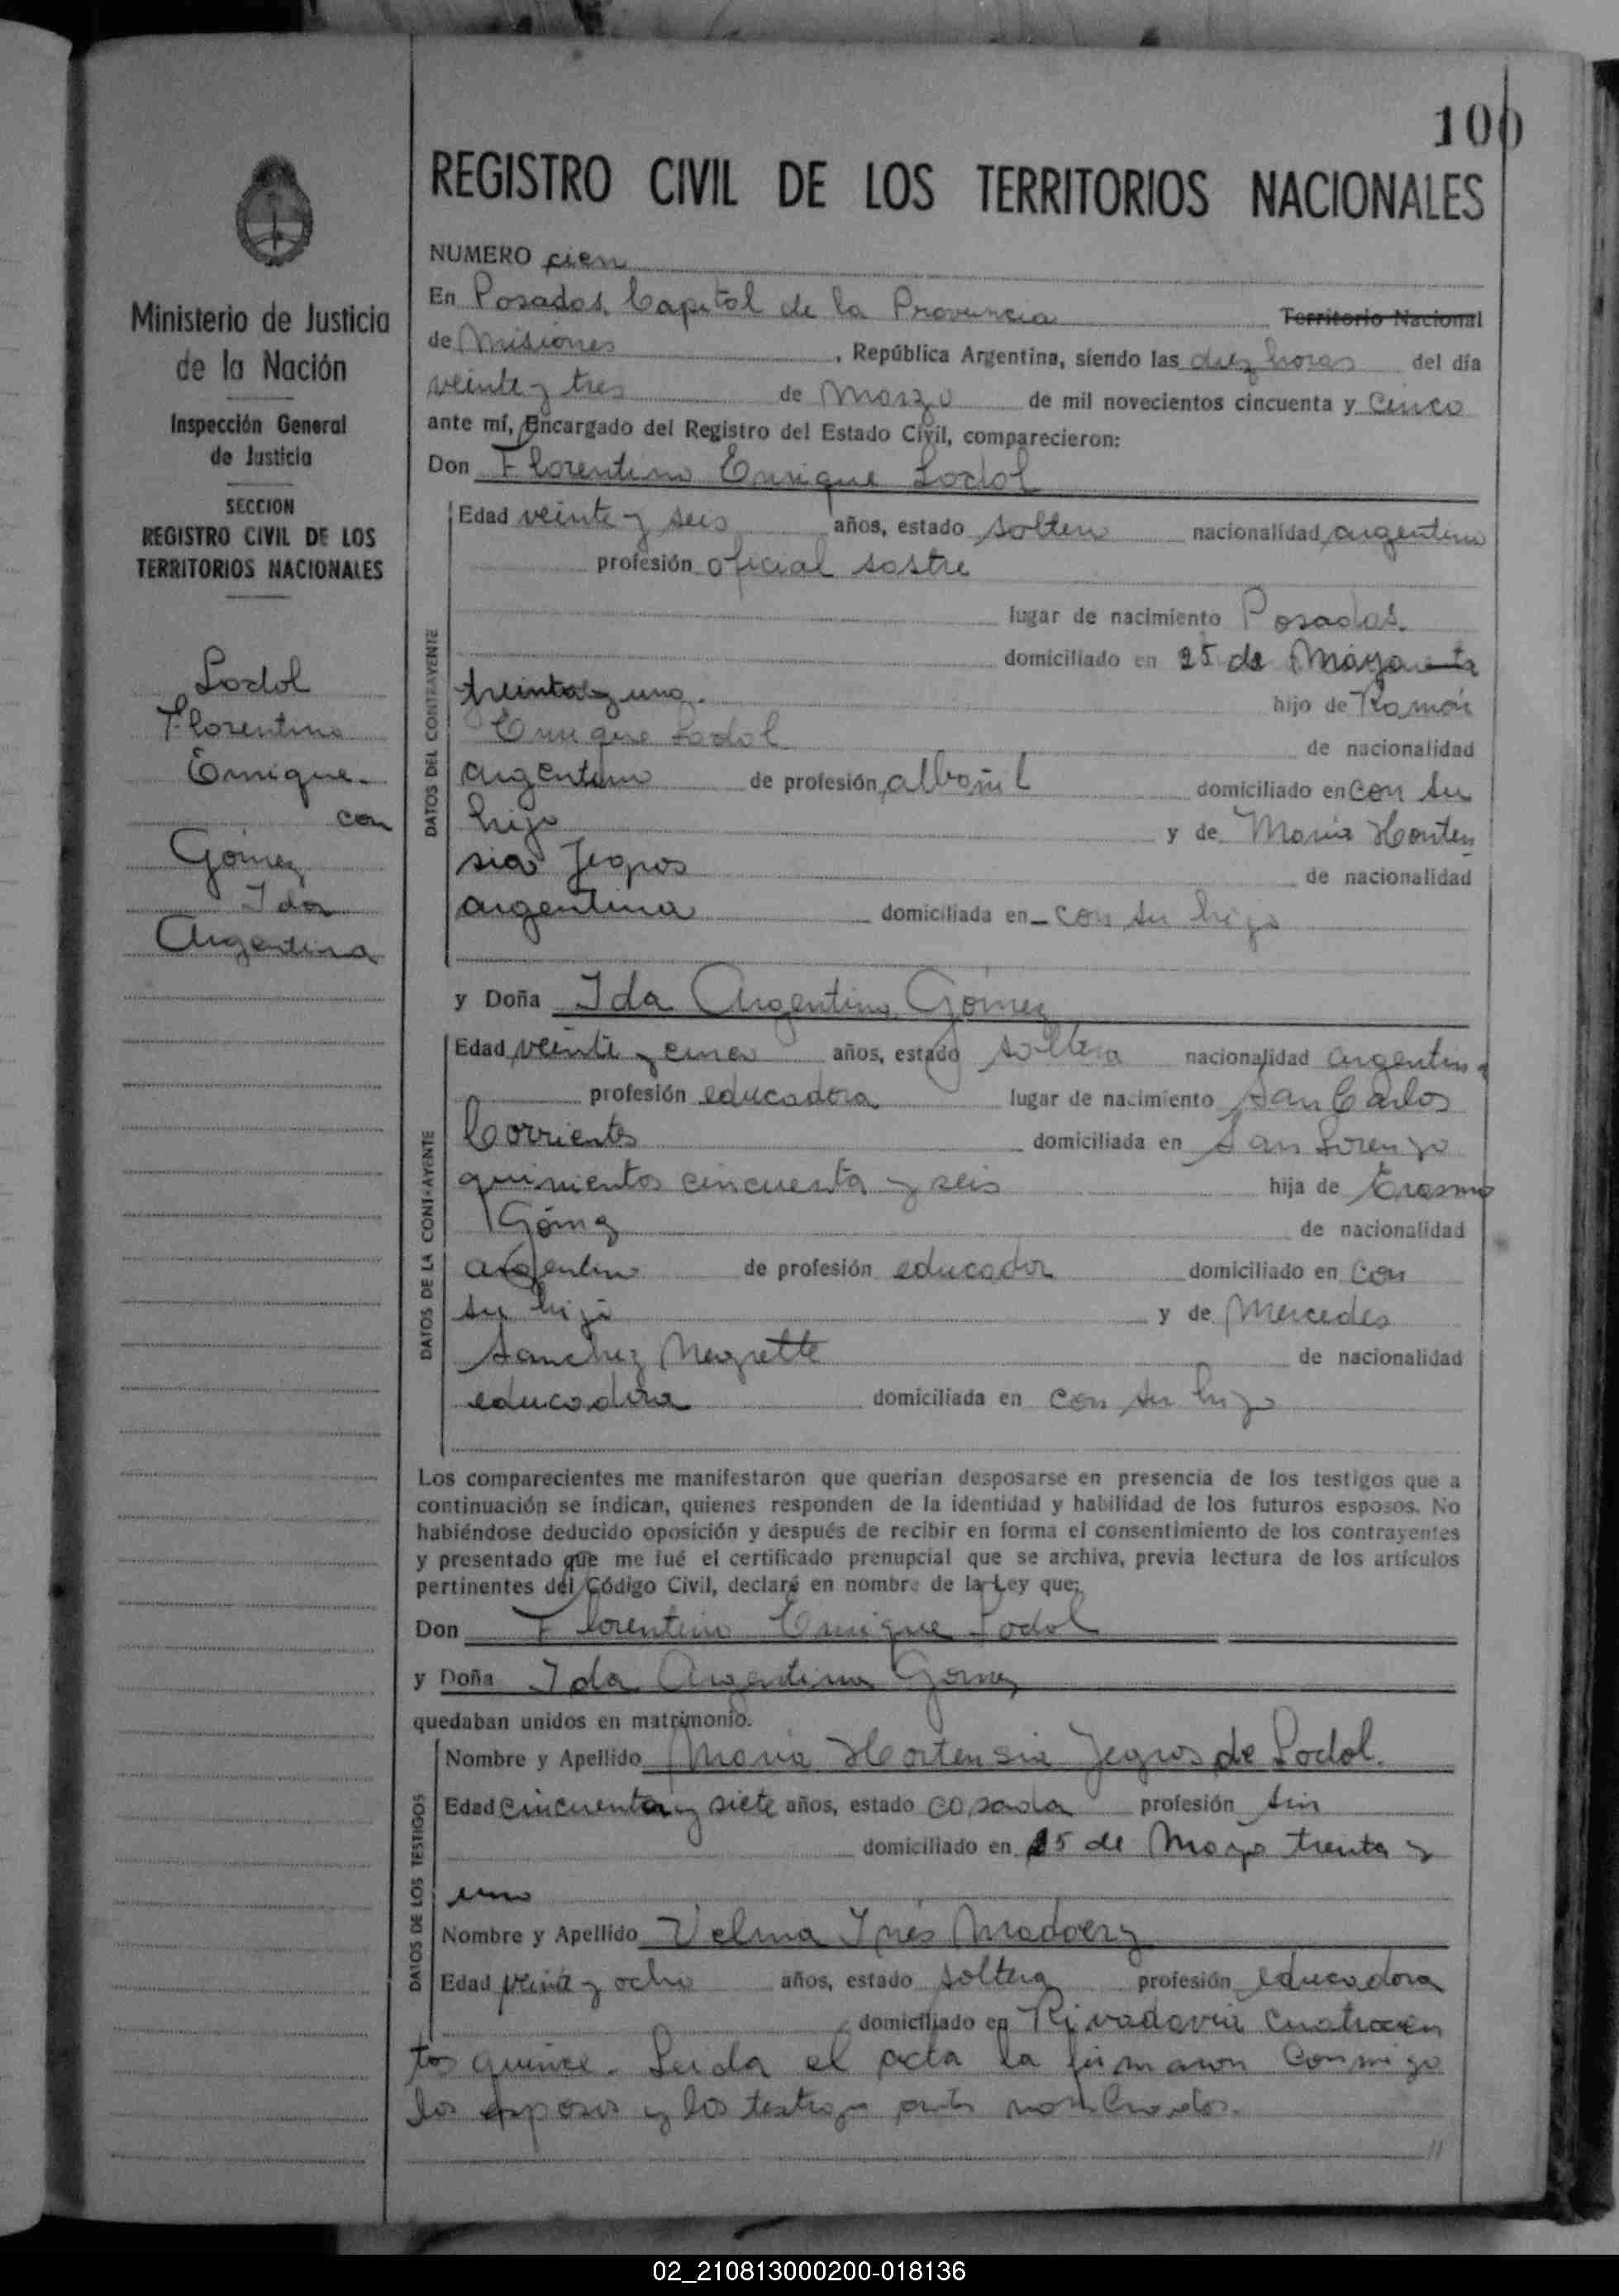 100
REGISTRO CIVIL DE LOS TERRITORIOS NACIONALES
Ministerio de Justicia
de la Nación
Inspección General
de Justicia
SECCION
REGISTRO CIVIL DE LOS
TERRITORIOS NACIONALES
Lodol
Florentino
Enrique
con
Gómez
Ida
Argentina
NUMERO cien
En Posadas, Capital de la Provincia Territorio Nacional
de Misiones, República Argentina, siendo las diez horas del día
veinte y tres de Marzo de mil novecientos cincuenta y cinco
ante mí, Encargado del Registro del Estado Civil, comparecieron:
Don Florentino Enrique Lodol
DATOS DEL CONTRAYENTE
Edad veinte y seis años, estado soltero nacionalidad argentino
profesión oficial sastre
lugar de nacimiento Posadas.
domiciliado en 25 de Mayo
treinta y uno. hijo de Ramón
Enrique Lodol de nacionalidad
argentino de profesión albañil domiciliado en con su
hijo y de María Horten
sia Jegros de nacionalidad
argentina domiciliada en con su hijo
y Doña Ida Argentina Gómez
DATOS DE LA CONTRAYENTE
Edad veinte y cinco años, estado soltera nacionalidad argentina
profesión educadora lugar de nacimiento San Carlos
Corrientes domiciliada en San Lorenzo
quinientos cincuenta y seis hija de Erasmo
Gómez de nacionalidad
argentino de profesión educador domiciliado en con
su hija y de Mercedes
Sanchez Negrette de nacionalidad
educadora domiciliada en con su hija
Los comparecientes me manifestaron que querían desposarse en presencia de los testigos que a
continuación se indican, quienes responden de la identidad y habilidad de los futuros esposos. No
habiéndose deducido oposición y después de recibir en forma el consentimiento de los contrayentes
y presentado que me fué el certificado prenupcial que se archiva, previa lectura de los artículos
pertinentes del Código Civil, declaré en nombre de la Ley que:
Don Florentino Enrique Lodol
y Doña Ida Argentina Gómez
quedaban unidos en matrimonio.
DATOS DE LOS TESTIGOS
Nombre y Apellido María Hortensia Jegros de Lodol.
Edad cincuenta y siete años, estado casada profesión sin
domiciliado en 25 de Mayo treinta y
uno
Nombre y Apellido Velma Inés Madoery
Edad veinte y ocho años, estado soltera profesión educadora
domiciliado en Rivadavia cuatrocien
tos quince. Leida el acta la firmaron conmigo
los esposos y los testigos antes nombrados.
//
02_210813000200-018136